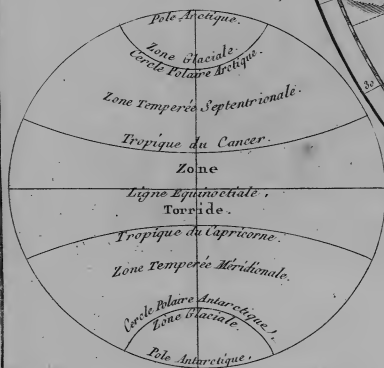 Pole Arctique.
Zone Glaciale.
Cercle Polaire Arctique.
Zone Temperée Septentrionale.
Tropique du Cancer.
Zone
Ligne Equinoctiale,
Torride.
Tropique du Capricorne.
Zone Temperée Méridionale.
Cercle Polaire Antarctique,
Zone Glaciale.
Pole Antarctique,
30